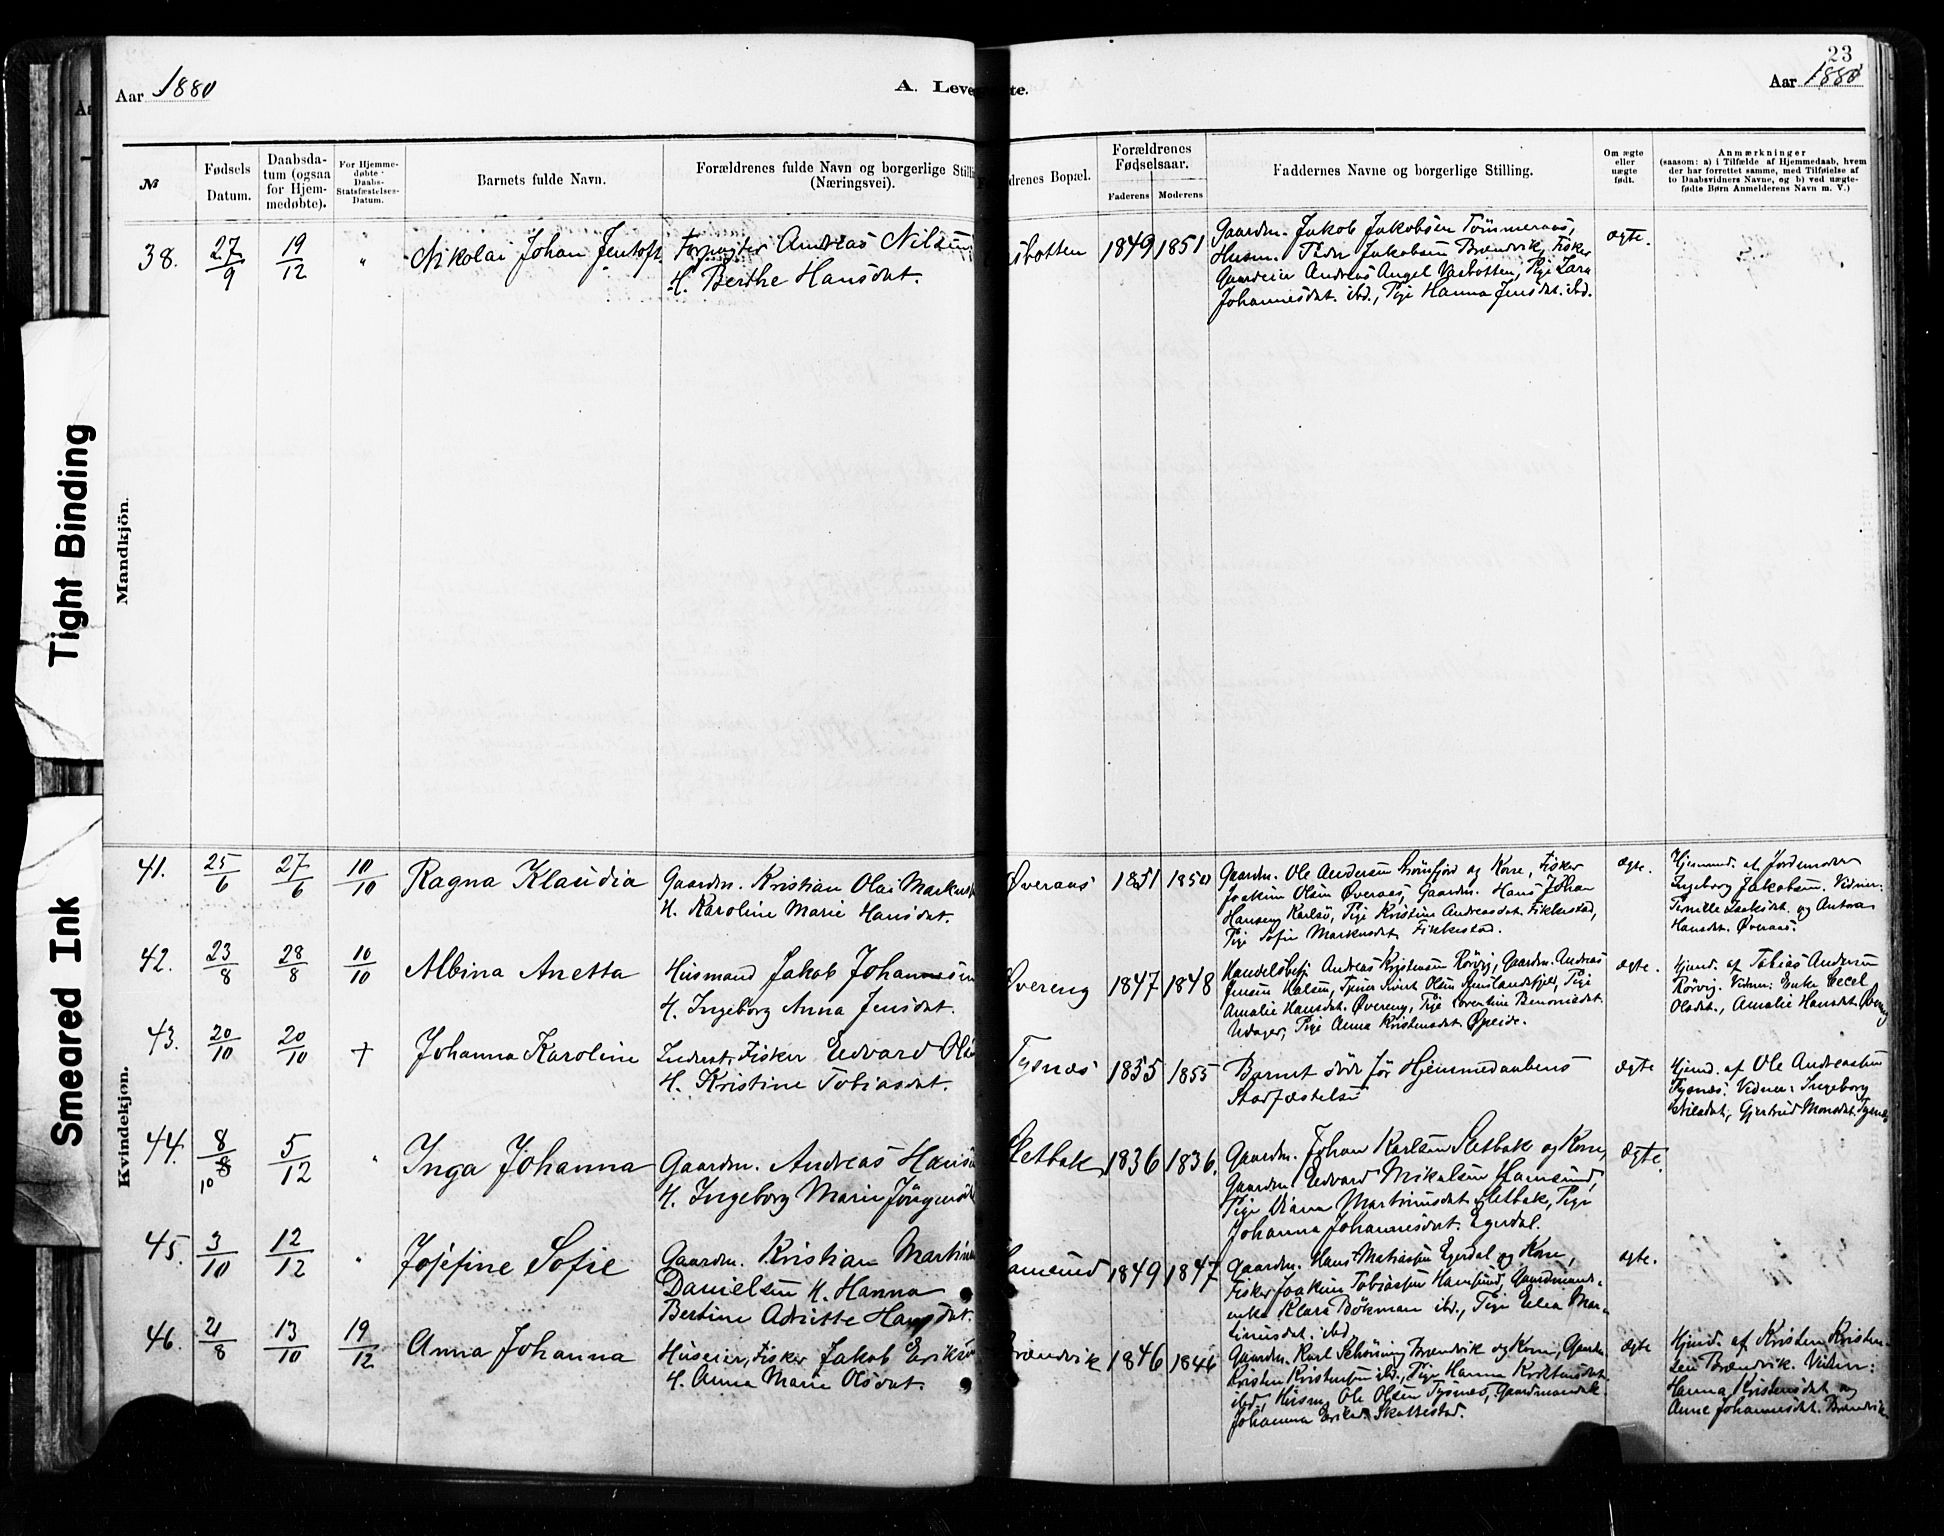 Aar 1880
A. Leve
te.
23
Aar 1880
Tight Binding
Smeared Ink
№
Fødsels Datum.
Daabsda-
tum (ogsaa
for Hjem-
medøbte).
For Hjemme-
døbte
Daabs-
Stadsfæstelses-
Datum.
Barnets fulde Navn.
Forældrenes fulde Navn og borgerlige Still
(Næringsvei).
drenes Bopæl.
Forældrenes
Fødselsaar.
Faderens
Moderens
Faddernes Navne og borgerlige Stilling.
Om ægte
eller
uægte
født.
Anmærkninger
(saasom: a) i Tilfælde af Hjemmedaab, hvem
der har forrettet samme, med Tilføielse af
to Daabsvidners Navne, og b) ved uægte-
fødte Børn Anmelderens Navn m. V.)
Mandkjön.
38. 27/9 19/12 " Nikolai Johan Jentoft
Forpagter Andreas Nilsen
H. Berthe Hansdat.
sbotten 1849 1851
Gaardm. Jakob Jakobsen Tømmeraas,
Husm. Peder Jakobsen Brændvik, Fisker
Gaardeier Andreas Angel Vasbotten, Pige Lara
Johannesdat. ibd., Pige Hanna Jensdat. ibd.
ægte.
Kvindekjøn.
41. 25/6 27/6 10/10 Ragna Klaudia
Gaardm. Kristian Olai Markus
H. Karoline Marie Hansdat.
Øveraas 1851 1850
Gaardm. Ole Andersen og Kone, Fisker
Joakim Olsen Øveraas, Gaardm. Hans Johan
Hansen Karlsø, Pige Kristine Andreasdat. Fikkestad,
Pige Sofie Markusdat. Fikkestad.
ægte.
Hjemmed. af Jordemoder
Ingeborg Jakobsen. Vidner:
Pernille Isaksdat. og Antona
Hansdat. Øveraas.
42. 23/8 28/8 10/10 Albina Anetta
Husmand Jakob Johannesen
H. Ingeborg Anna Jensdat.
Øvereng 1847 1848
Handelsbetj. Andreas Kristensen Rørvig, Gaardm. Andreas
Jensen Kalsen, Tjener Knut Olsen, Pige
Amalie Hansdat. Øvereng, Pige Lorentine Benoniedat.
Pige Anna Kristensdat. Øpeide.
ægte.
Hjemd. af Tobias Andersen
Rørvig. Vidner: Enke Cecel
Olsdat., Amalie Hansdat. Øvereng
43. 20/10 20/10 † Johanna Karoline
Inderst, Fisker Edvard Ols
H. Kristine Tobiasdat.
Tysnæs 1855 1855
Barnet døde før Hjemmedaabens
Stadfæstelse
ægte
Hjemd. af Ole Andreassen
Tysnæs. Vidner: Ingeborg
Nilsdat., Gjertrud Monsdat. Tysnæs
44. 8/10 5/12 " Inga Johanna
Gaardm. Andreas Hans
H. Ingeborg Marie Jörgensd
Sletbak 1836 1836.
Gaardm. Johan Karlsen Sletbak og Kone,
Gaardm. Edvard Mikalsen Hamsund,
Pige Diana Martinusdat. Sletbak, Pige
Johanna Johannesdat. Egerdal.
Ægte.
45. 3/10 12/12 " Josefine Sofie
Gaardm. Kristian Martin
Danielsen H. Hanna
Bertine Adritte Hansdat.
amsund 1849 1847
Gaardm. Hans Matiassen Egerdal og Kone,
Fisker Joakim Tobiassen Hamsund, Gaardmands-
enke Klara Bökman ibd., Pige Elea Mar-
tinusdat. ibd.
ægte.
46. 21/8 13/10 19/12 Anna Johanna
Huseier, Fisker Jakob Eriks
H. Anna Marie Olsdat.
Brændvik 1846 1846
Gaardm. Karl Schöning Brændvik og Kone, Gaardm.
Kristen Kristensen ibd., Pige Hanna Kristensdat.
ibd., Husm. Ole Olsen Tysnæs, Gaardmandsk.
Johanna Eriksd. Skottestad.
ægte
Hjemd. af Kristen Kristen-
sen Brændvik. Vidner:
Hanna Kristensdat. og
Anne Johannesdat. Brændvik